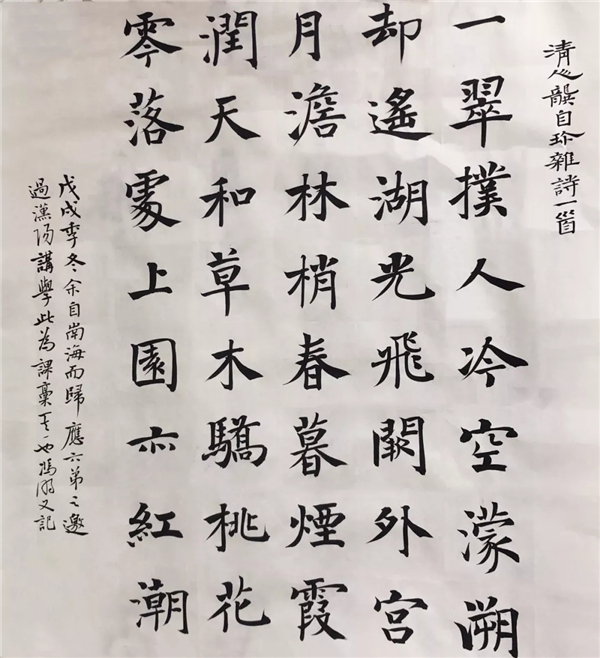 清人龔自珍雜詩一首
一翠撲人冷空濛溯
却遙湖光飛闕外宮
月澹林梢春暮煙霞
潤天和草木驕桃花
零落處上園亦紅潮
戊戌季冬余自南海而歸應六弟之邀
過漢陽講學此為課稾之一也馮又記